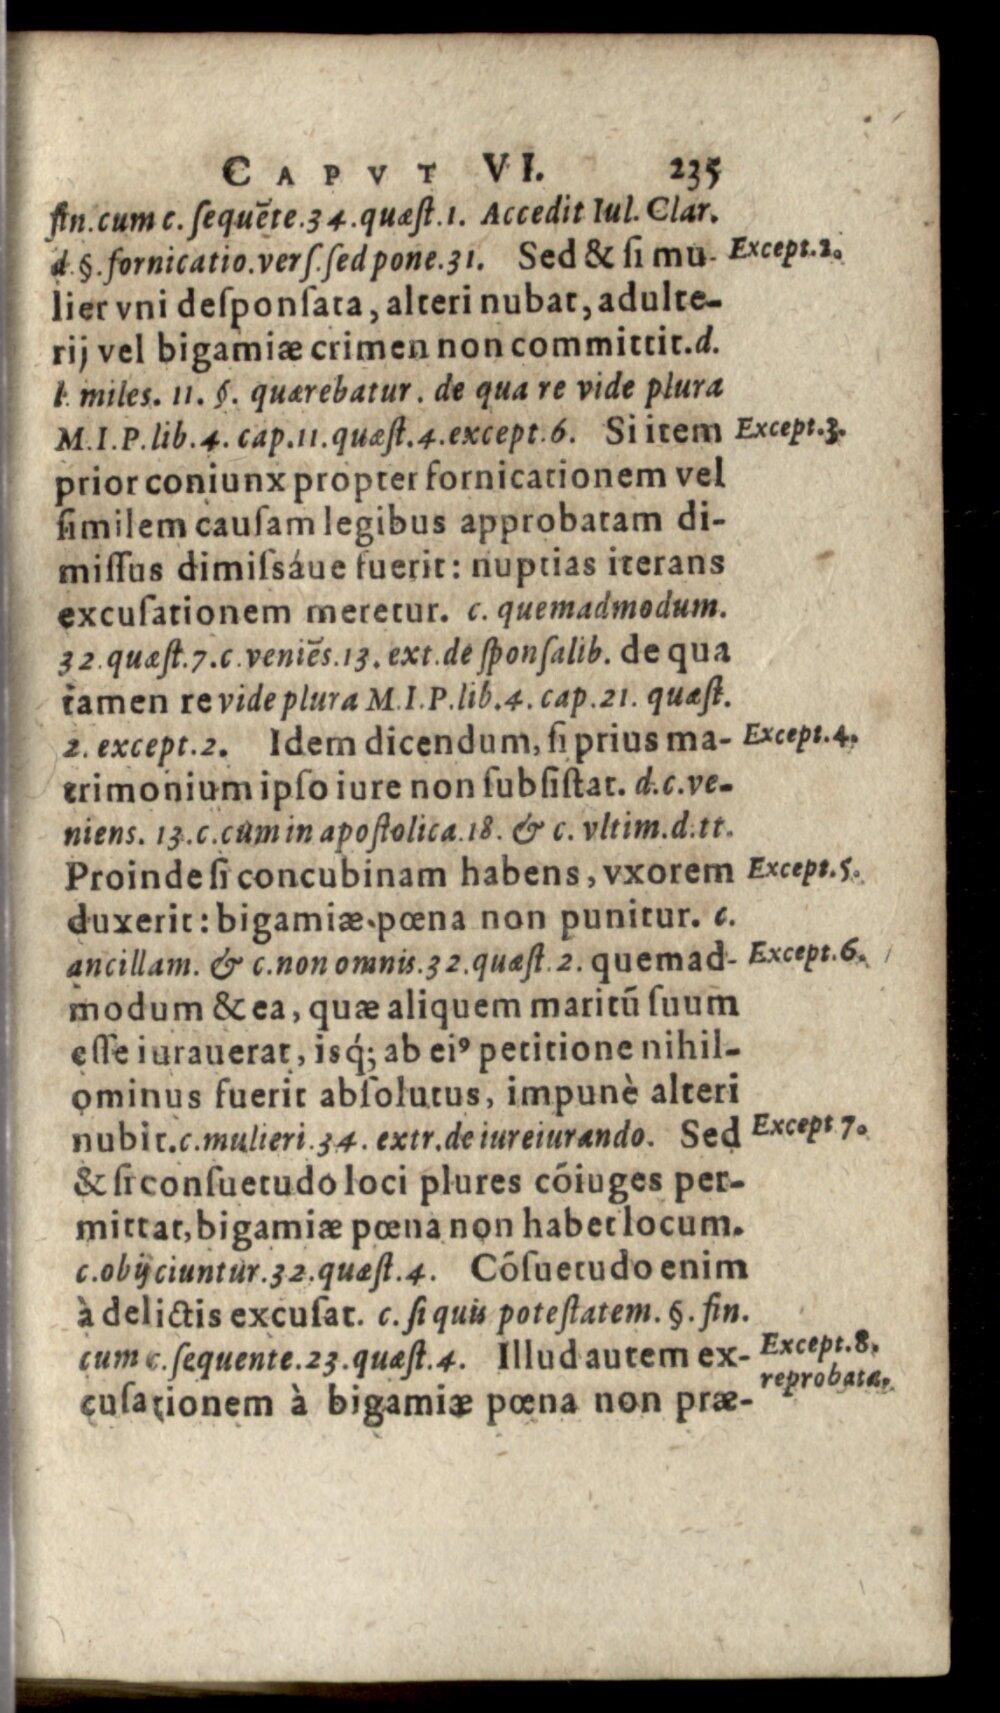 CAPVT VI. 235
fin. cum c. sequēte. 34. quæst. 1. Accedit Iul. Clar.
d. §. fornicatio. vers. sed pone. 31. Sed & si mu- Except. 2.
lier vni desponsata, alteri nubat, adulte-
rij vel bigamiæ crimen non committit. d.
l. miles. 11. §. quærebatur. de qua re vide plura
M. I. P. lib. 4. cap. 11. quæst. 4. except. 6. Si item Except. 3.
prior coniunx propter fornicationem vel
similem causam legibus approbatam di-
missus dimissáue fuerit: nuptias iterans
excusationem meretur. c. quemadmodum.
32. quæst. 7. c. veniēs. 13. ext. de sponsalib. de qua
tamen re vide plura M. I. P. lib. 4. cap. 21. quæst.
2. except. 2. Idem dicendum, si prius ma- Except. 4.
trimonium ipso iure non subsistat. d. c. ve-
niens. 13. c. cùm in apostolica. 18. & c. vltim. d. tt.
Proinde si concubinam habens, vxorem Except. 5.
duxerit: bigamiæ pœna non punitur. c.
ancillam. & c. non omnis. 32. quæst. 2. quemad- Except. 6.
modum & ea, quæ aliquem maritū suum
esse iurauerat, isq́; ab eiꝰ petitione nihil-
ominus fuerit absolutus, impunè alteri
nubit. c. mulieri. 34. extr. de iureiurando. Sed Except 7.
& si consuetudo loci plures cōiuges per-
mittat, bigamiæ pœna non habet locum.
c. obijciuntur. 32. quæst. 4. Cōsuetudo enim
à delictis excusat. c. si quis potestatem. §. fin.
cum c. sequente. 23. quæst. 4. Illud autem ex- Except. 8.
reprobata.
cusationem à bigamiæ pœna non præ-